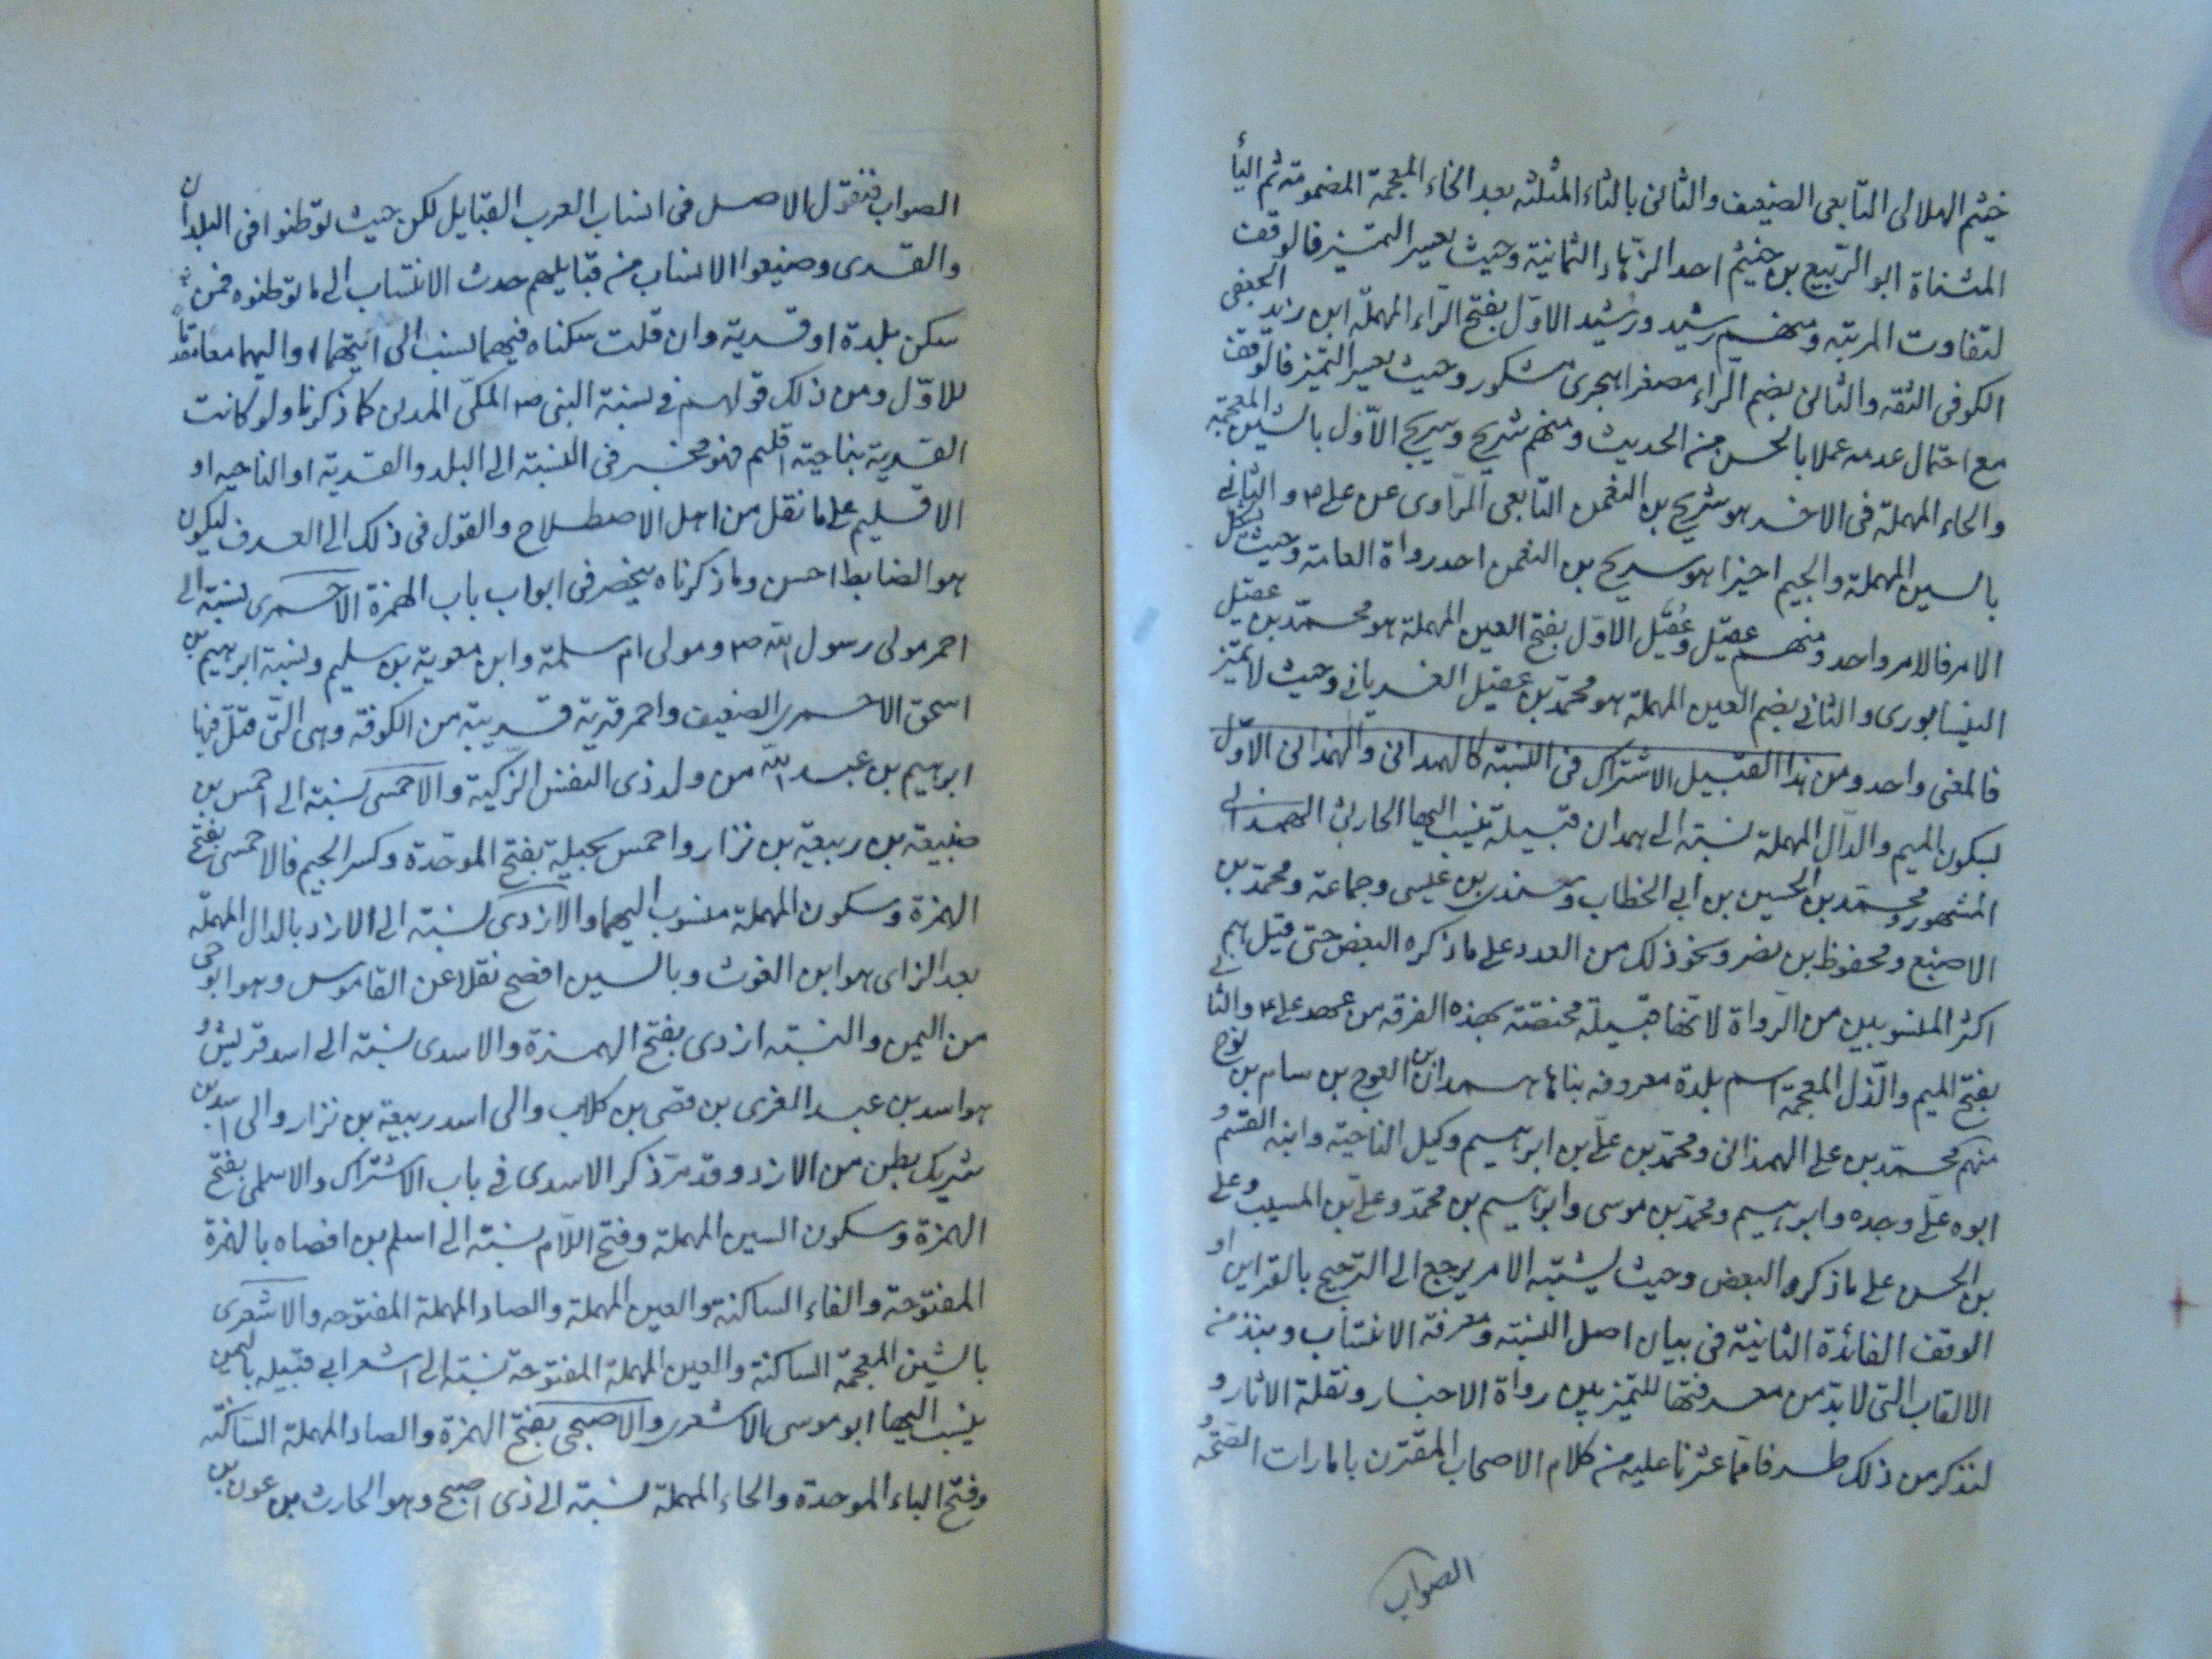 خيثم الهلالى التابعى الضعيف والثانى بالثاء المثلثه بعد الخاء المعجمة المضمومة ثم اليا
المثناة ابو الربيع بن خثيم احد الزهاد الثمانية وحيث يعسر التميز فالوقف
لتفاوت المرتبه ومنهم رشيد ورشيد الاول بفتح الراء المهملة ابن زيد الجعفى
الكوفى الثقه والثانى بضم الراء مصغرا هجرى مشكور وحيث يعسر التميز فالوقف
مع احتمال عدمه عملا بالحسن من الحديث ومنهم شريح وسريج الاول بالشين المعجمة
والحاء المهملة فى الاخر هو شريح بن النعمن التابعى الراوى عن على ع والثانى
بالسين المهملة والجيم اخيرا هو سريج بن النعمن احد رواة العامة وحيث يشكل
الامر فالامر واحد ومنهم عقيل وعقيل الاول بفتح العين المهملة هو محمد بن عقيل
النيسابورى والثانى بضم العين المهملة هو محمد بن عقيل الفريابى وحيث لا يتميز
فالمعنى واحد ومن هذا القبيل الاشتراك فى النسبة كالهمدانى والهمذانى الاول
بسكون الميم والدال المهملة نسبة الى همدان قبيلة ينسب اليها الحارث الهمدانى
المشهور ومحمد بن الحسين بن ابى الخطاب وسندى بن عيسى وجماعة ومحمد بن
الاصبغ ومحفوظ بن نصر ونحو ذلك من العدد على ما ذكره البعض حتى قيل هم
اكثر المنسوبين من الرواة لانها قبيلة مختصة بهذه الفرقه من عهد على ع والثانى
بفتح الميم والذال المعجمة اسم بلدة معروفه بناها همدان بن الفوج بن سام بن نوح
منهم محمد بن على الهمذانى ومحمد بن على بن ابرهيم وكيل الناحية وابنه القسم و
ابوه على وجده وابرهيم ومحمد بن موسى وابرهيم بن محمد وعلى بن المسيب وعلى
بن الحسن على ما ذكروا البعض وحيث يشتبه الامر يرجع الى الترجيح بالقراين او
الوقف الفائدة الثانية فى بيان اصل النسبة ومعرفة الانتساب ونبذ من
الالقاب التى لا بد من معرفتها للتميز بين رواة الاخبار ونقلة الاثار و
لنذكر من ذلك طرفا مما عثرنا عليه من كلام الاصحاب المقترن بامارات الصحة و
الصواب
الصواب فنقول الاصل فى انساب العرب القبايل لكن حيث توطنوا فى البلدان
والقرى وضيعوا الانساب من قبايلهم حدث الانتساب الى ما توطنوه فمن
سكن بلدة او قرية وان قلت سكناه فيهما نسب الى ايتهما او اليهما معا مقدما
للاول ومن ذلك قولهم فى نسبة النبى ص المكى المدنى كما ذكرنا ولو كانت
القرية بناحية اقليم فهو مخير فى النسبة الى البلد والقرية او الناحيه او
الاقليم على ما نقل من اهل الاصطلاح والقول فى ذلك الى العرف ليكون
هو الضابط احسن وما ذكرناه ينحصر فى ابواب باب الهمزة الاحمرى نسبة الى
احمر مولى رسول الله ص ومولى ام سلمة وابن معوية بن سليم ونسبة ابرهيم بن
اسحق الاحمرى الضعيف واحمر قرية قريبة من الكوفة وهى التى قتل فيها
ابرهيم بن عبد الله من ولد ذى النفس الزكية والاحمسى نسبة الى احمس بن
ضبيعة بن ربيعة بن نزار واحمس بجيلة بفتح الموحدة وكسر الجيم فالاحمسى بفتح
الهمزة وسكون المهملة منسوب اليهما والازدى نسبة الى الازد بالدال المهملة
بعد الزاى هو ابن الغوث وبالسين افصح نقلا عن القاموس وهو ابو حى
من اليمن والنسبة ازدى بفتح الهمزة والاسدى نسبة الى اسد قريش و
هو اسد بن عبد العزى بن قصى بن كلاب والى اسد ربيعة بن نزار والى اسد بن
شريك بطن من الازد وقد مر ذكر الاسدى فى باب الاشتراك والاسلمى بفتح
الهمزة وسكون السين المهملة وفتح اللام نسبة الى اسلم بن افصاه بالهمزة
المفتوحة والفاء الساكنة والعين المهملة والصاد المهملة المفتوحه والاشعرى
بالشين المعجمة الساكنة والعين المهملة المفتوحة نسبة الى اشعر ابى قبيله باليمن
ينسب اليها ابو موسى الاشعرى والاصبحى بفتح الهمزة والصاد المهملة الساكنة
وفتح الباء الموحدة والحاء المهملة نسبة الى ذى اصبح وهو الحارث بن عون بن